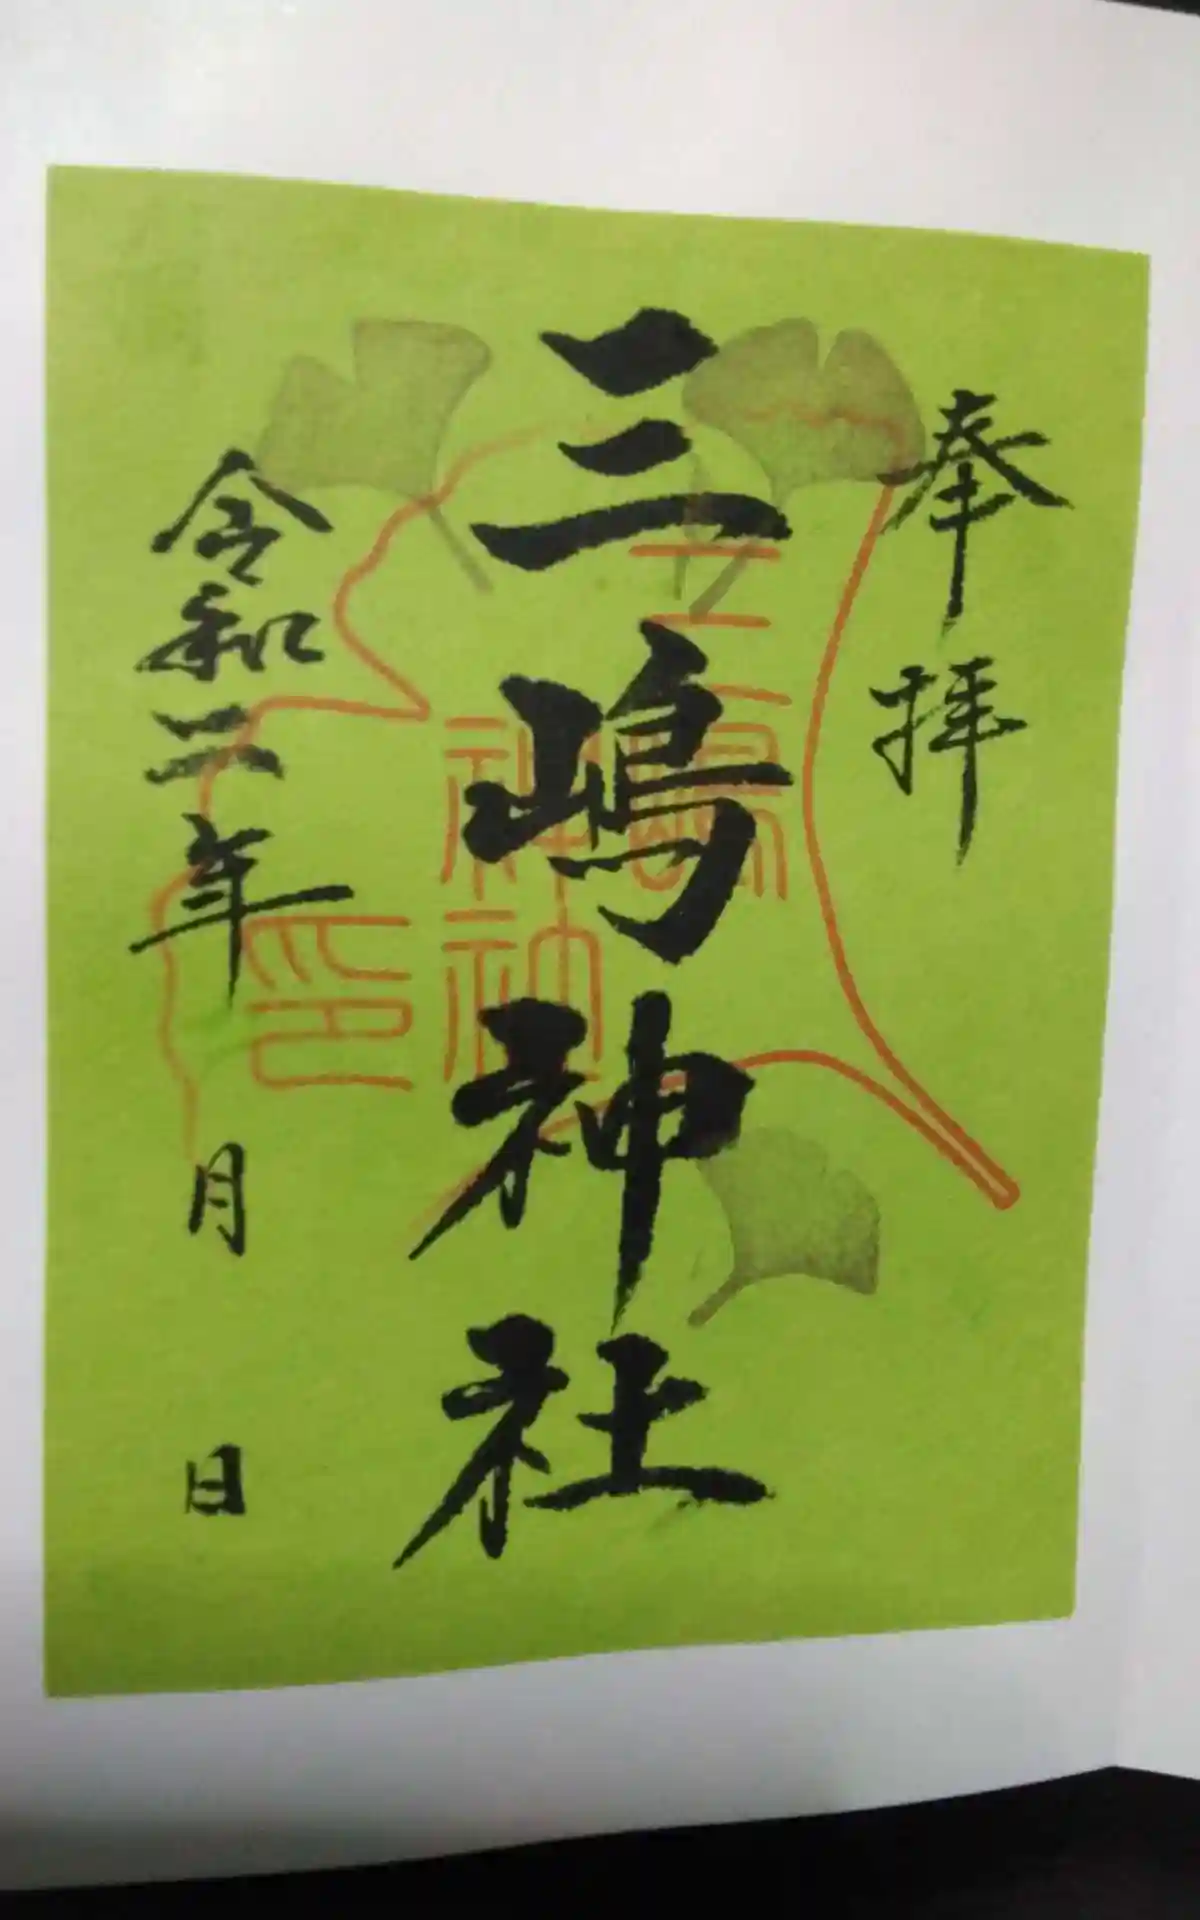 奉拝
三嶋神社
三嶋神社印
令和二年 月 日